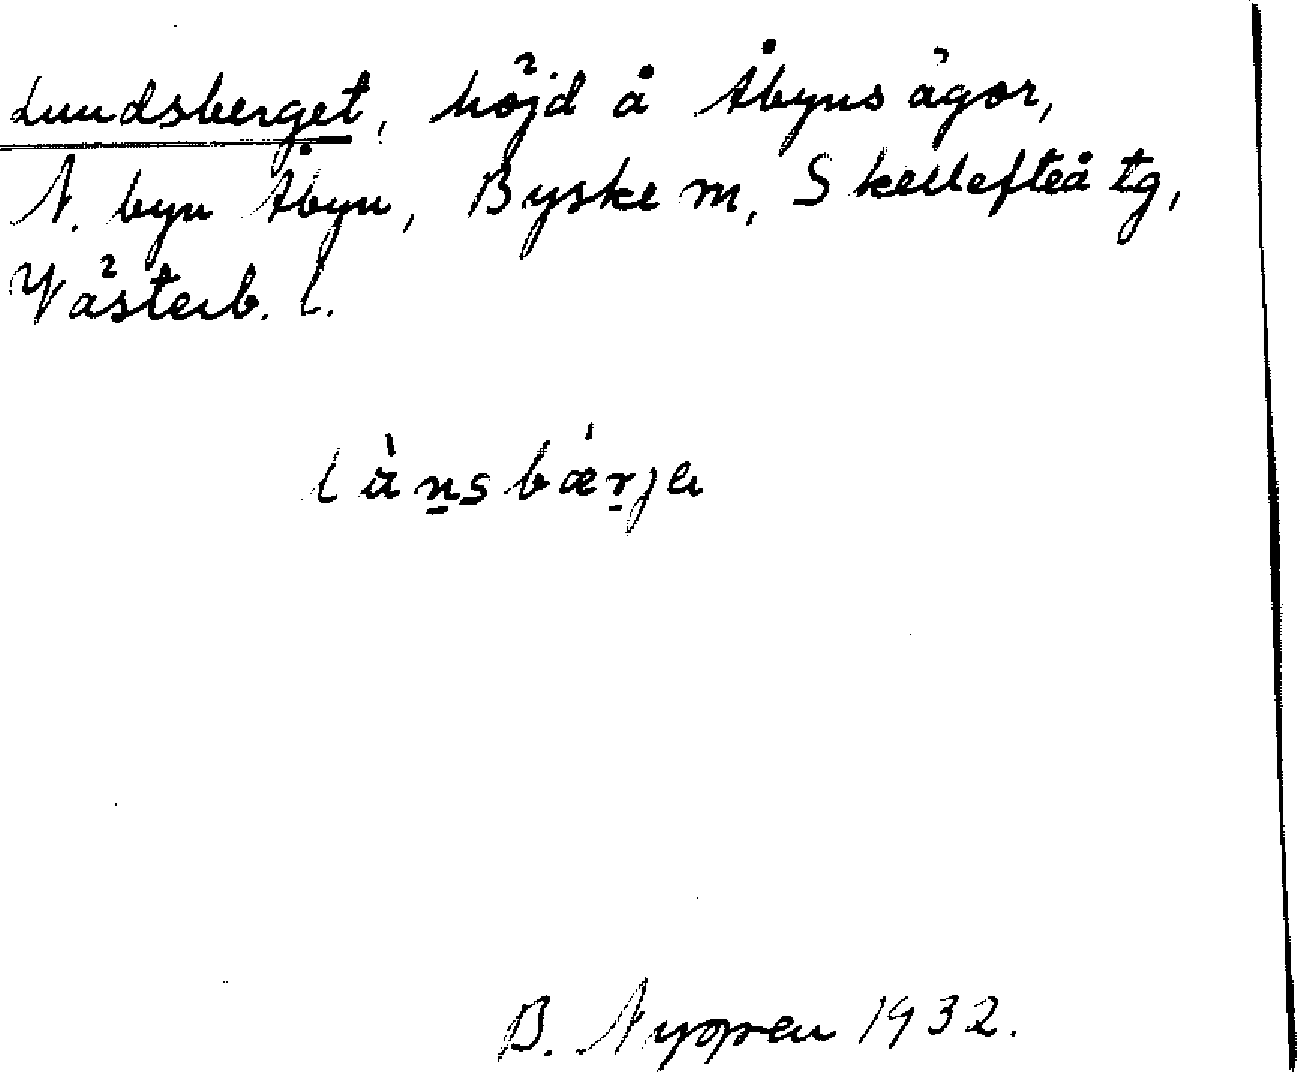 Lundsberget, höjd å Åbyns ägor,
N. byn Åbyn, Byske sn, Skellefteå tg,
Västerb. l.
lu̇n̠s̠bær̠ja
B. Nygren 1932.